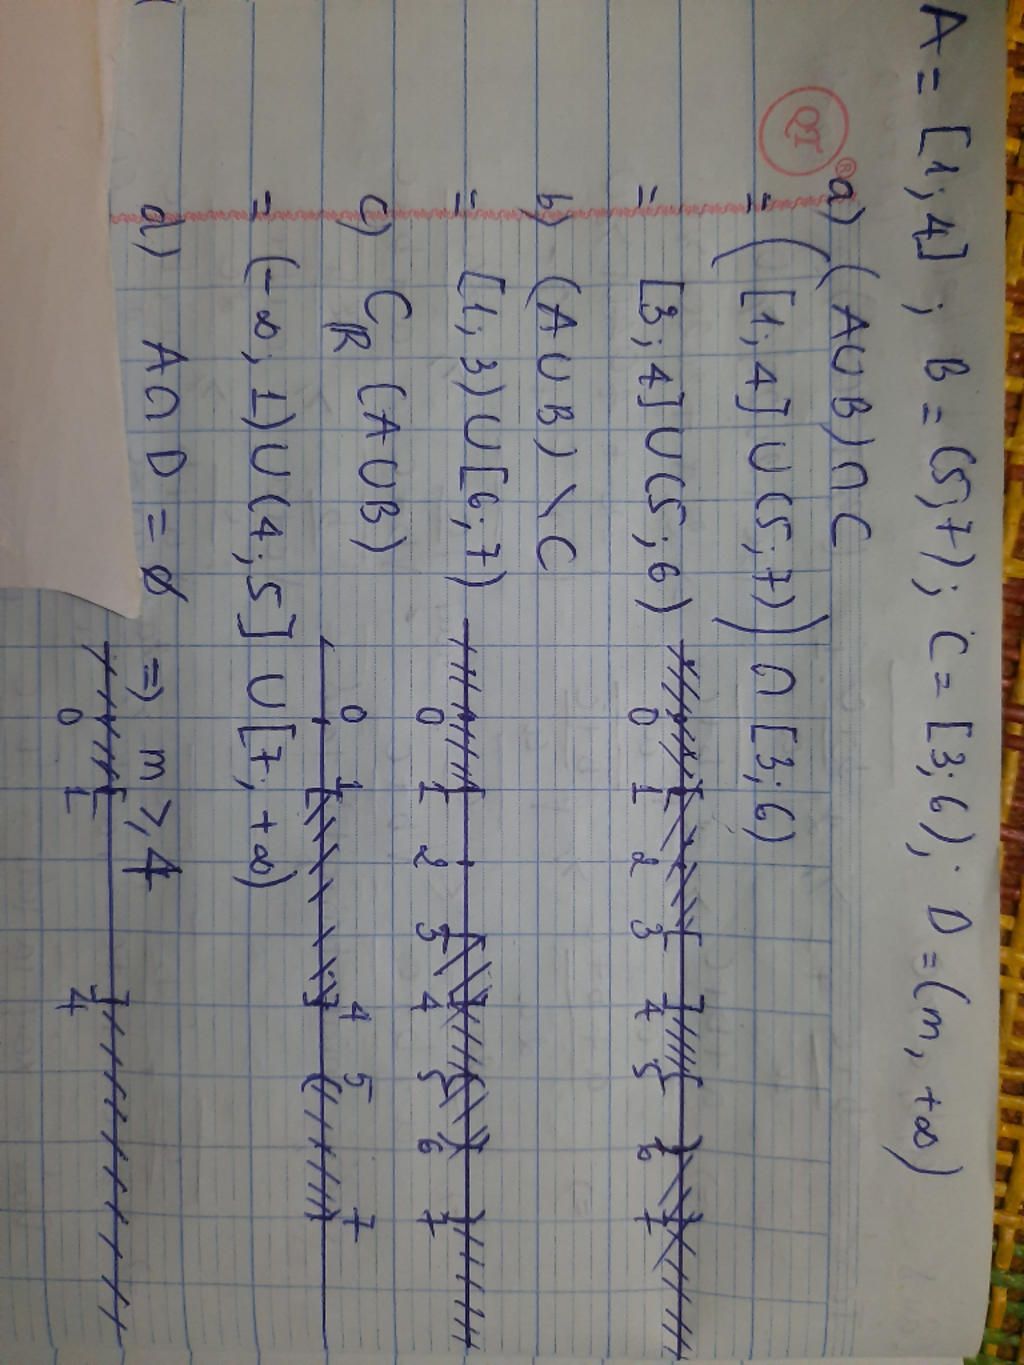 A = [1; 4]; B = (5; 7); C = [3; 6); D = (m, +∞)
QI ®
a) (A∪B)∩C
= ([1; 4] ∪ (5; 7)) ∩ [3; 6)
= [3; 4] ∪ (5; 6)
0 1 2 3 4 5 6 7
b) (A∪B) \ C
= [1; 3) ∪ [6; 7)
0 1 2 3 4 5 6 7
c) Cℝ (A∪B)
0 1 4 5 7
= (-∞; 1) ∪ (4; 5] ∪ [7; +∞)
d) A∩D = ∅ => m ⩾ 4
0 1 4